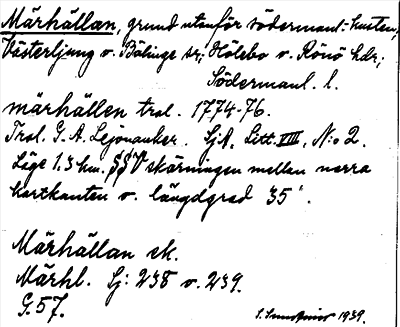 Märhällan, grund utanför södermanl. kusten,
Västerljung o. Bälinge snr; Hölebo o. Rönö hdr;
Södermanl. l.
märhällen trol. 1774-76.
Trol. G. A. Lejonanker. SjA, Litt. VIII, N:o 2.
Läge 1.3 km. SSV skärningen mellan norra
kartkanten o. längdgrad 35'.
Märhällan ek.
Märhl. Sj: 238 o. 239.
G. 57.
1939.